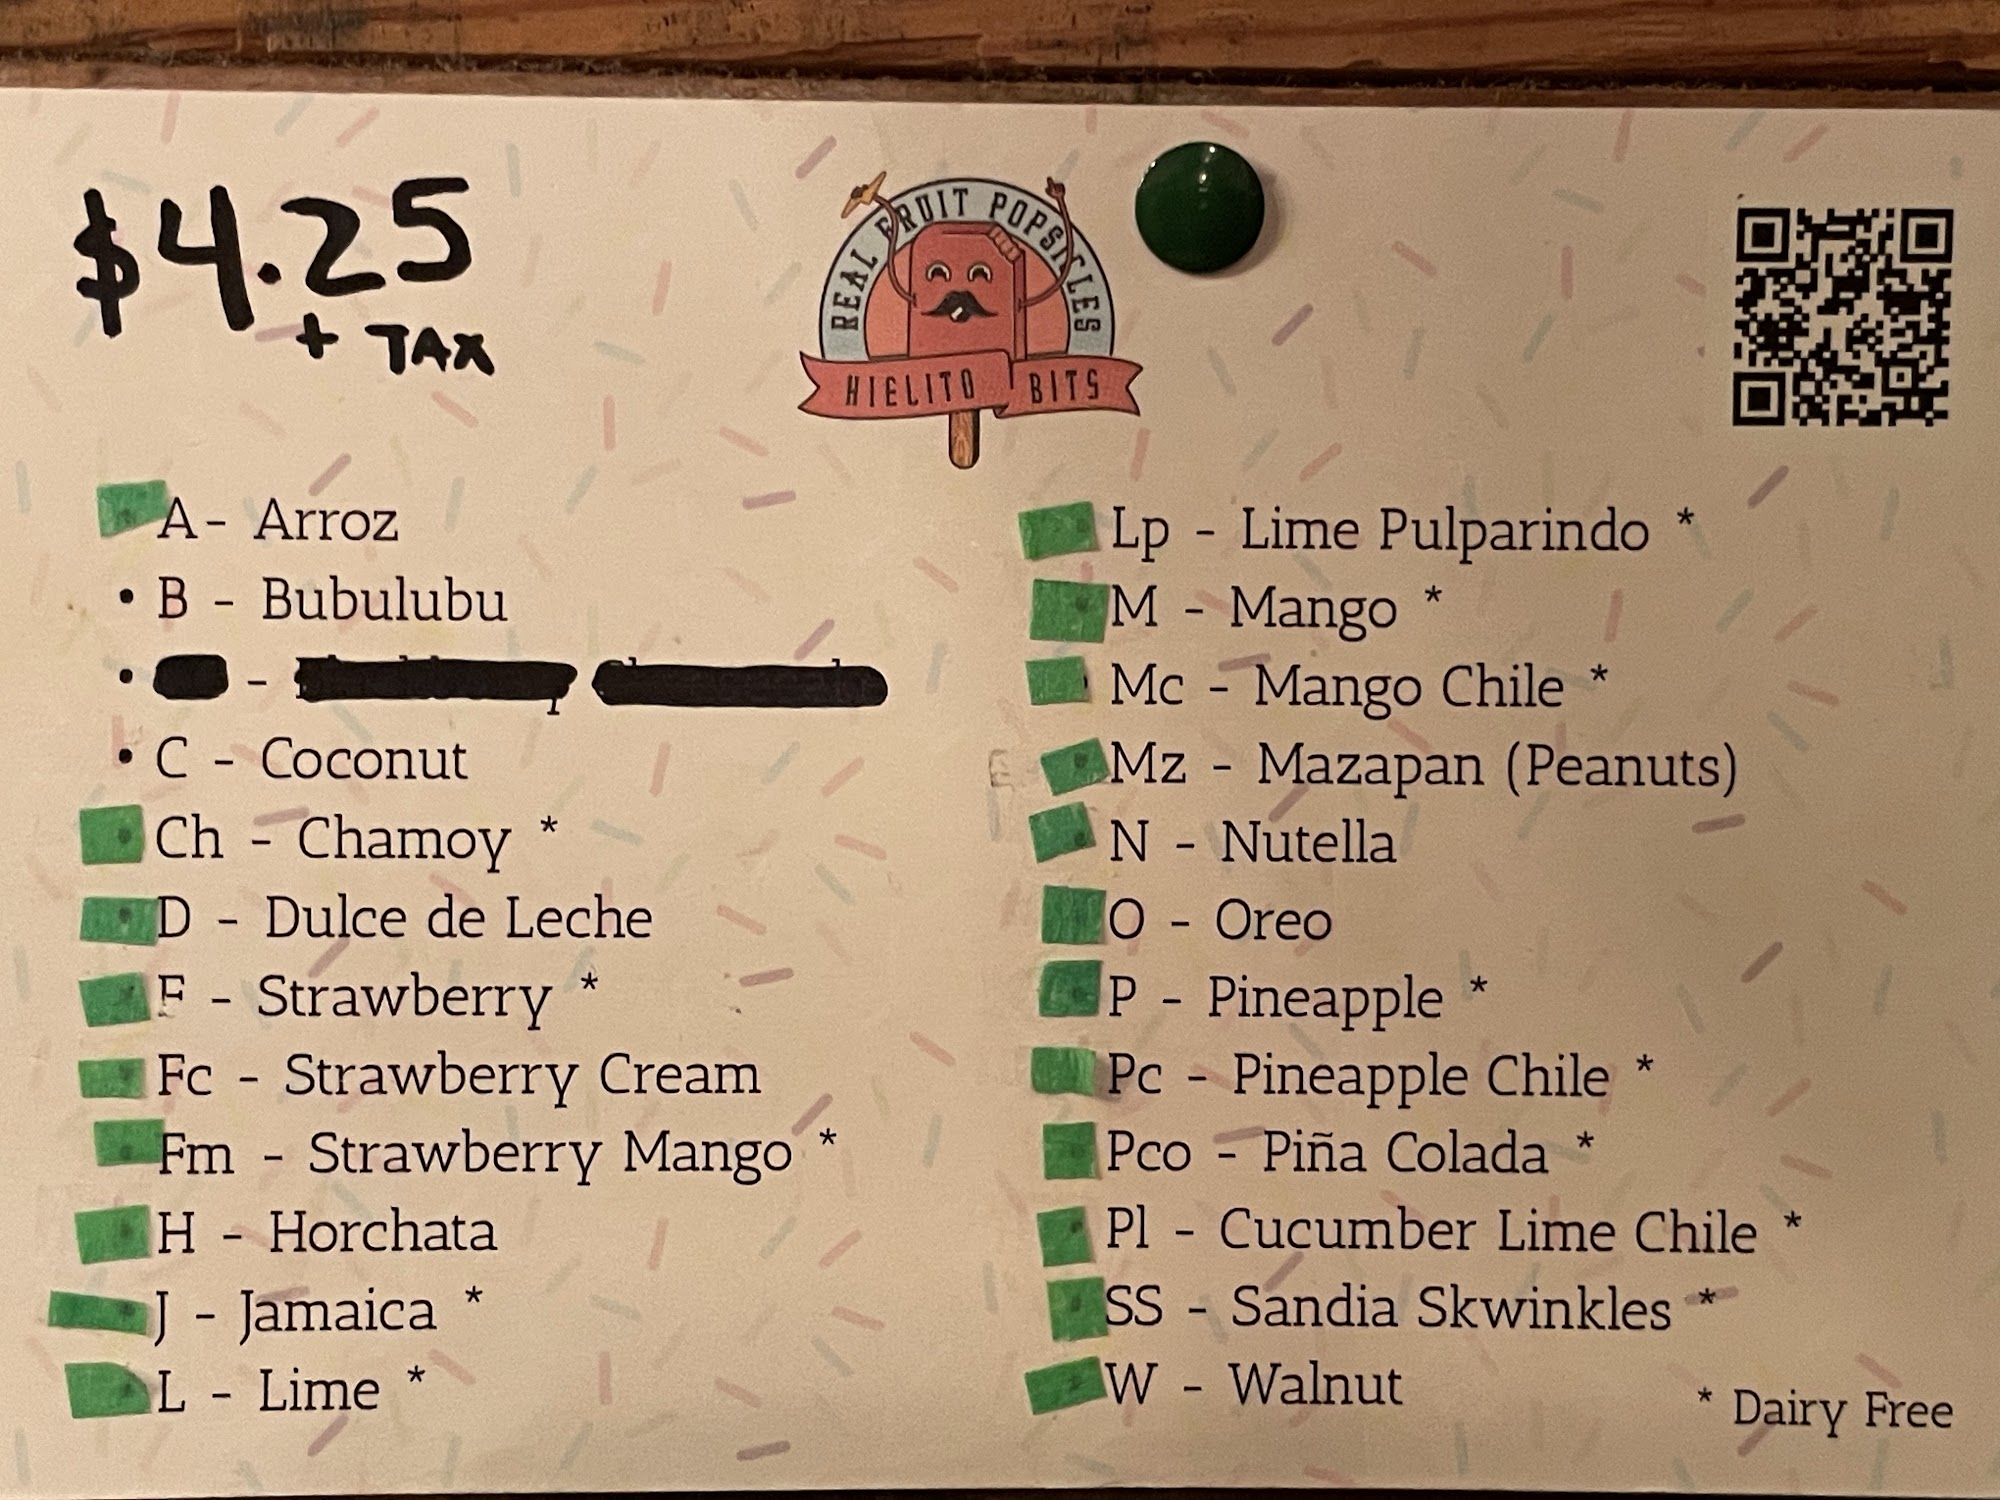 $4.25
+ TAX
REAL FRUIT POPSICLES
HIELITO BITS
A - Arroz
• B - Bubulubu
• -
• C - Coconut
Ch - Chamoy *
D - Dulce de Leche
F - Strawberry *
Fc - Strawberry Cream
Fm - Strawberry Mango *
H - Horchata
J - Jamaica *
L - Lime *
Lp - Lime Pulparindo *
M - Mango *
Mc - Mango Chile *
Mz - Mazapan (Peanuts)
N - Nutella
O - Oreo
P - Pineapple *
Pc - Pineapple Chile *
Pco - Piña Colada *
Pl - Cucumber Lime Chile *
SS - Sandia Skwinkles *
W - Walnut
* Dairy Free